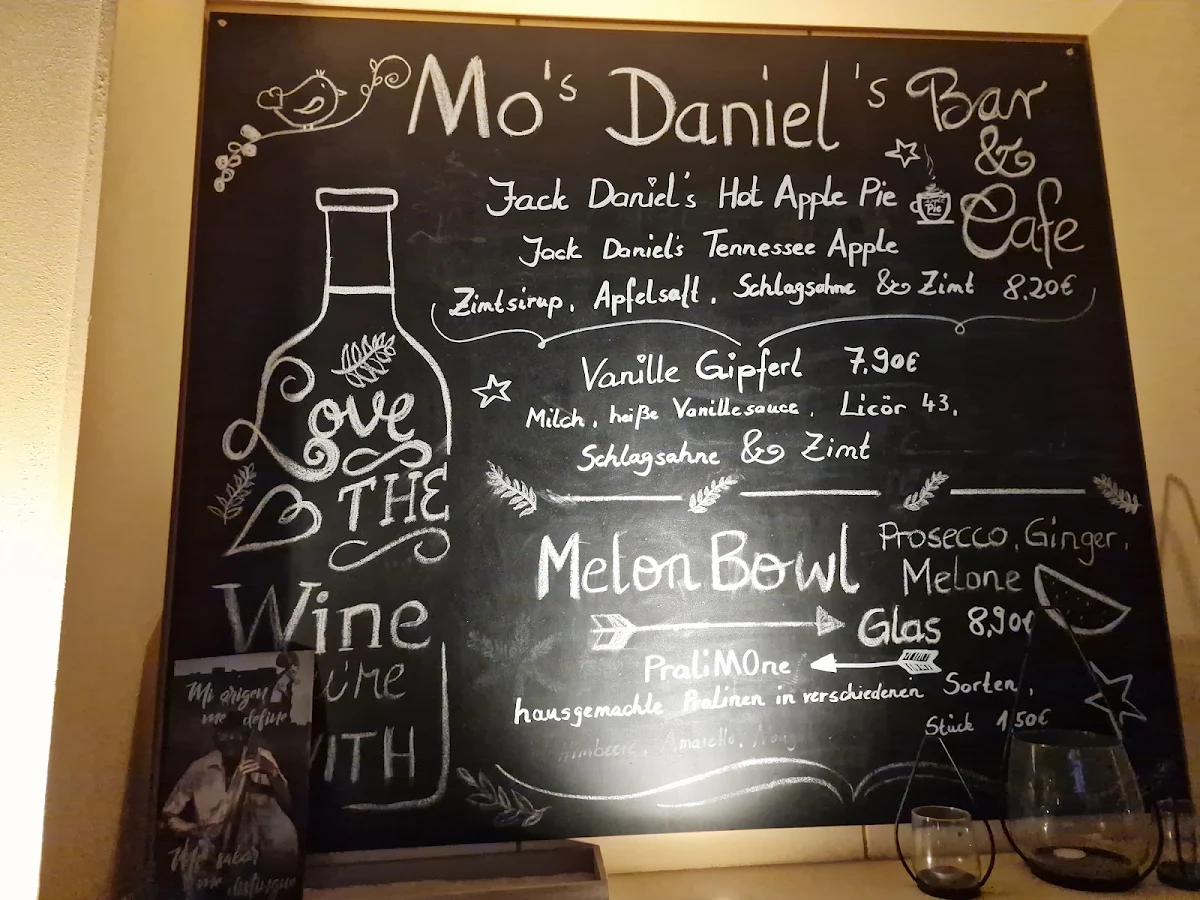 Mo's Daniel's Bar
&
Cafe
Jack Daniel's Hot Apple Pie
Apple
Pie
Jack Daniel's Tennessee Apple
Zimtsirup, Apfelsaft, Schlagsahne & Zimt 8.20€
Vanille Gipferl 7.90€
Milch, heiße Vanillesauce, Licör 43,
Schlagsahne & Zimt
Melon Bowl
Prosecco, Ginger,
Melone
Glas 8,90€
PraliMOne
hausgemachte Pralinen in verschiedenen Sorten,
Himbeere, Amaretto, Noug
Stück 1,50€
Love
THE
Wine
WITH
Mi origen
me define
Mi sabor
me distingue